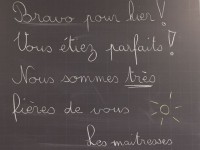 Bravo pour hier !
Vous étiez parfaits !
Nous sommes très
fières de vous
Les maitresses